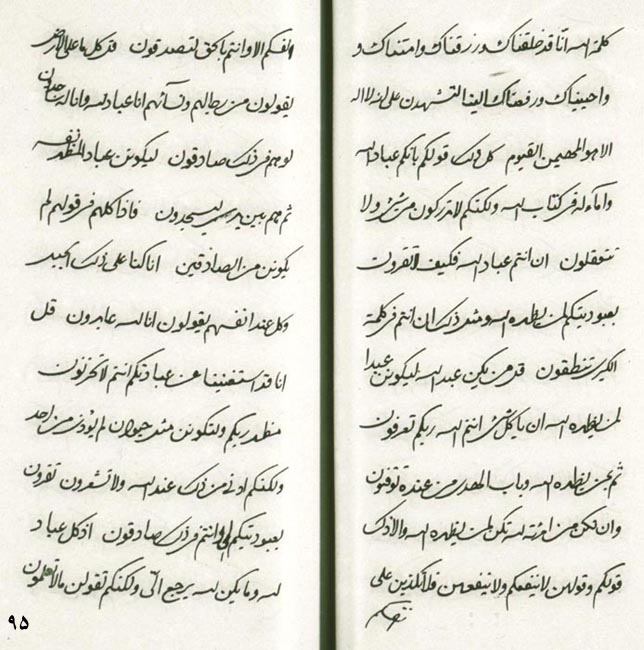 كلمة الله انا قد خلقناك ورزقناك وامتناك و
واحييناك ورفعناك الينا لتشهدن على انه لا اله
الا هو المهيمن القيوم كل ذلك قولكم بانكم عباد الله
واماء له في كتاب الله ولكنكم لا تدركون من شيء ولا
تتعقلون ان انتم عباد الله فكيف لا تقرون
بعبوديتكم لمن يظهره الله ومثل ذلك ان انتم في كلمة
الكبرى تنطقون قد من يكن عبد الله ليكونن عبدا
لمن يظهره الله ان يا كل شيء انتم الله ربكم تعرفون
ثم بمن يظهره الله وباب الهدى من عنده توقنون
وان تكن من امرئة لله تكن لمن يظهره الله والا ذلك
قولكم وقولهن لا ينفعكم ولا ينفعهن فلا تكذبن على
انفسكم الا وانتم بالحق لتصدقون قد كل ما على الارض
يقولون من رجالهم ونسائهم انا عباد لله وانا له ساجدون
لو هم في ذلك صادقون ليكونن عباد المظهر نفسه
ثم هم بين يديه ليسجدون فاذا كلهم في قولهم لم
يكونن من الصادقين انا كنا على ذلك
وكل عند انفسهم يقولون انا لله عابدون قل
انا قد استغنينا عن عبادتكم انتم لا تحزنون
مظهر ربكم ولتكونن مثل حيوان لم يؤذى من احد
ولكنكم ادنى من ذلك عند الله ولا تشعرون تقرون
بعبوديتكم لي وانتم في ذلك صادقون اذ كل عباد
لله وما يكن لله يرجع الي ولكنكم تقولن ما لا تعلمون
٩٥